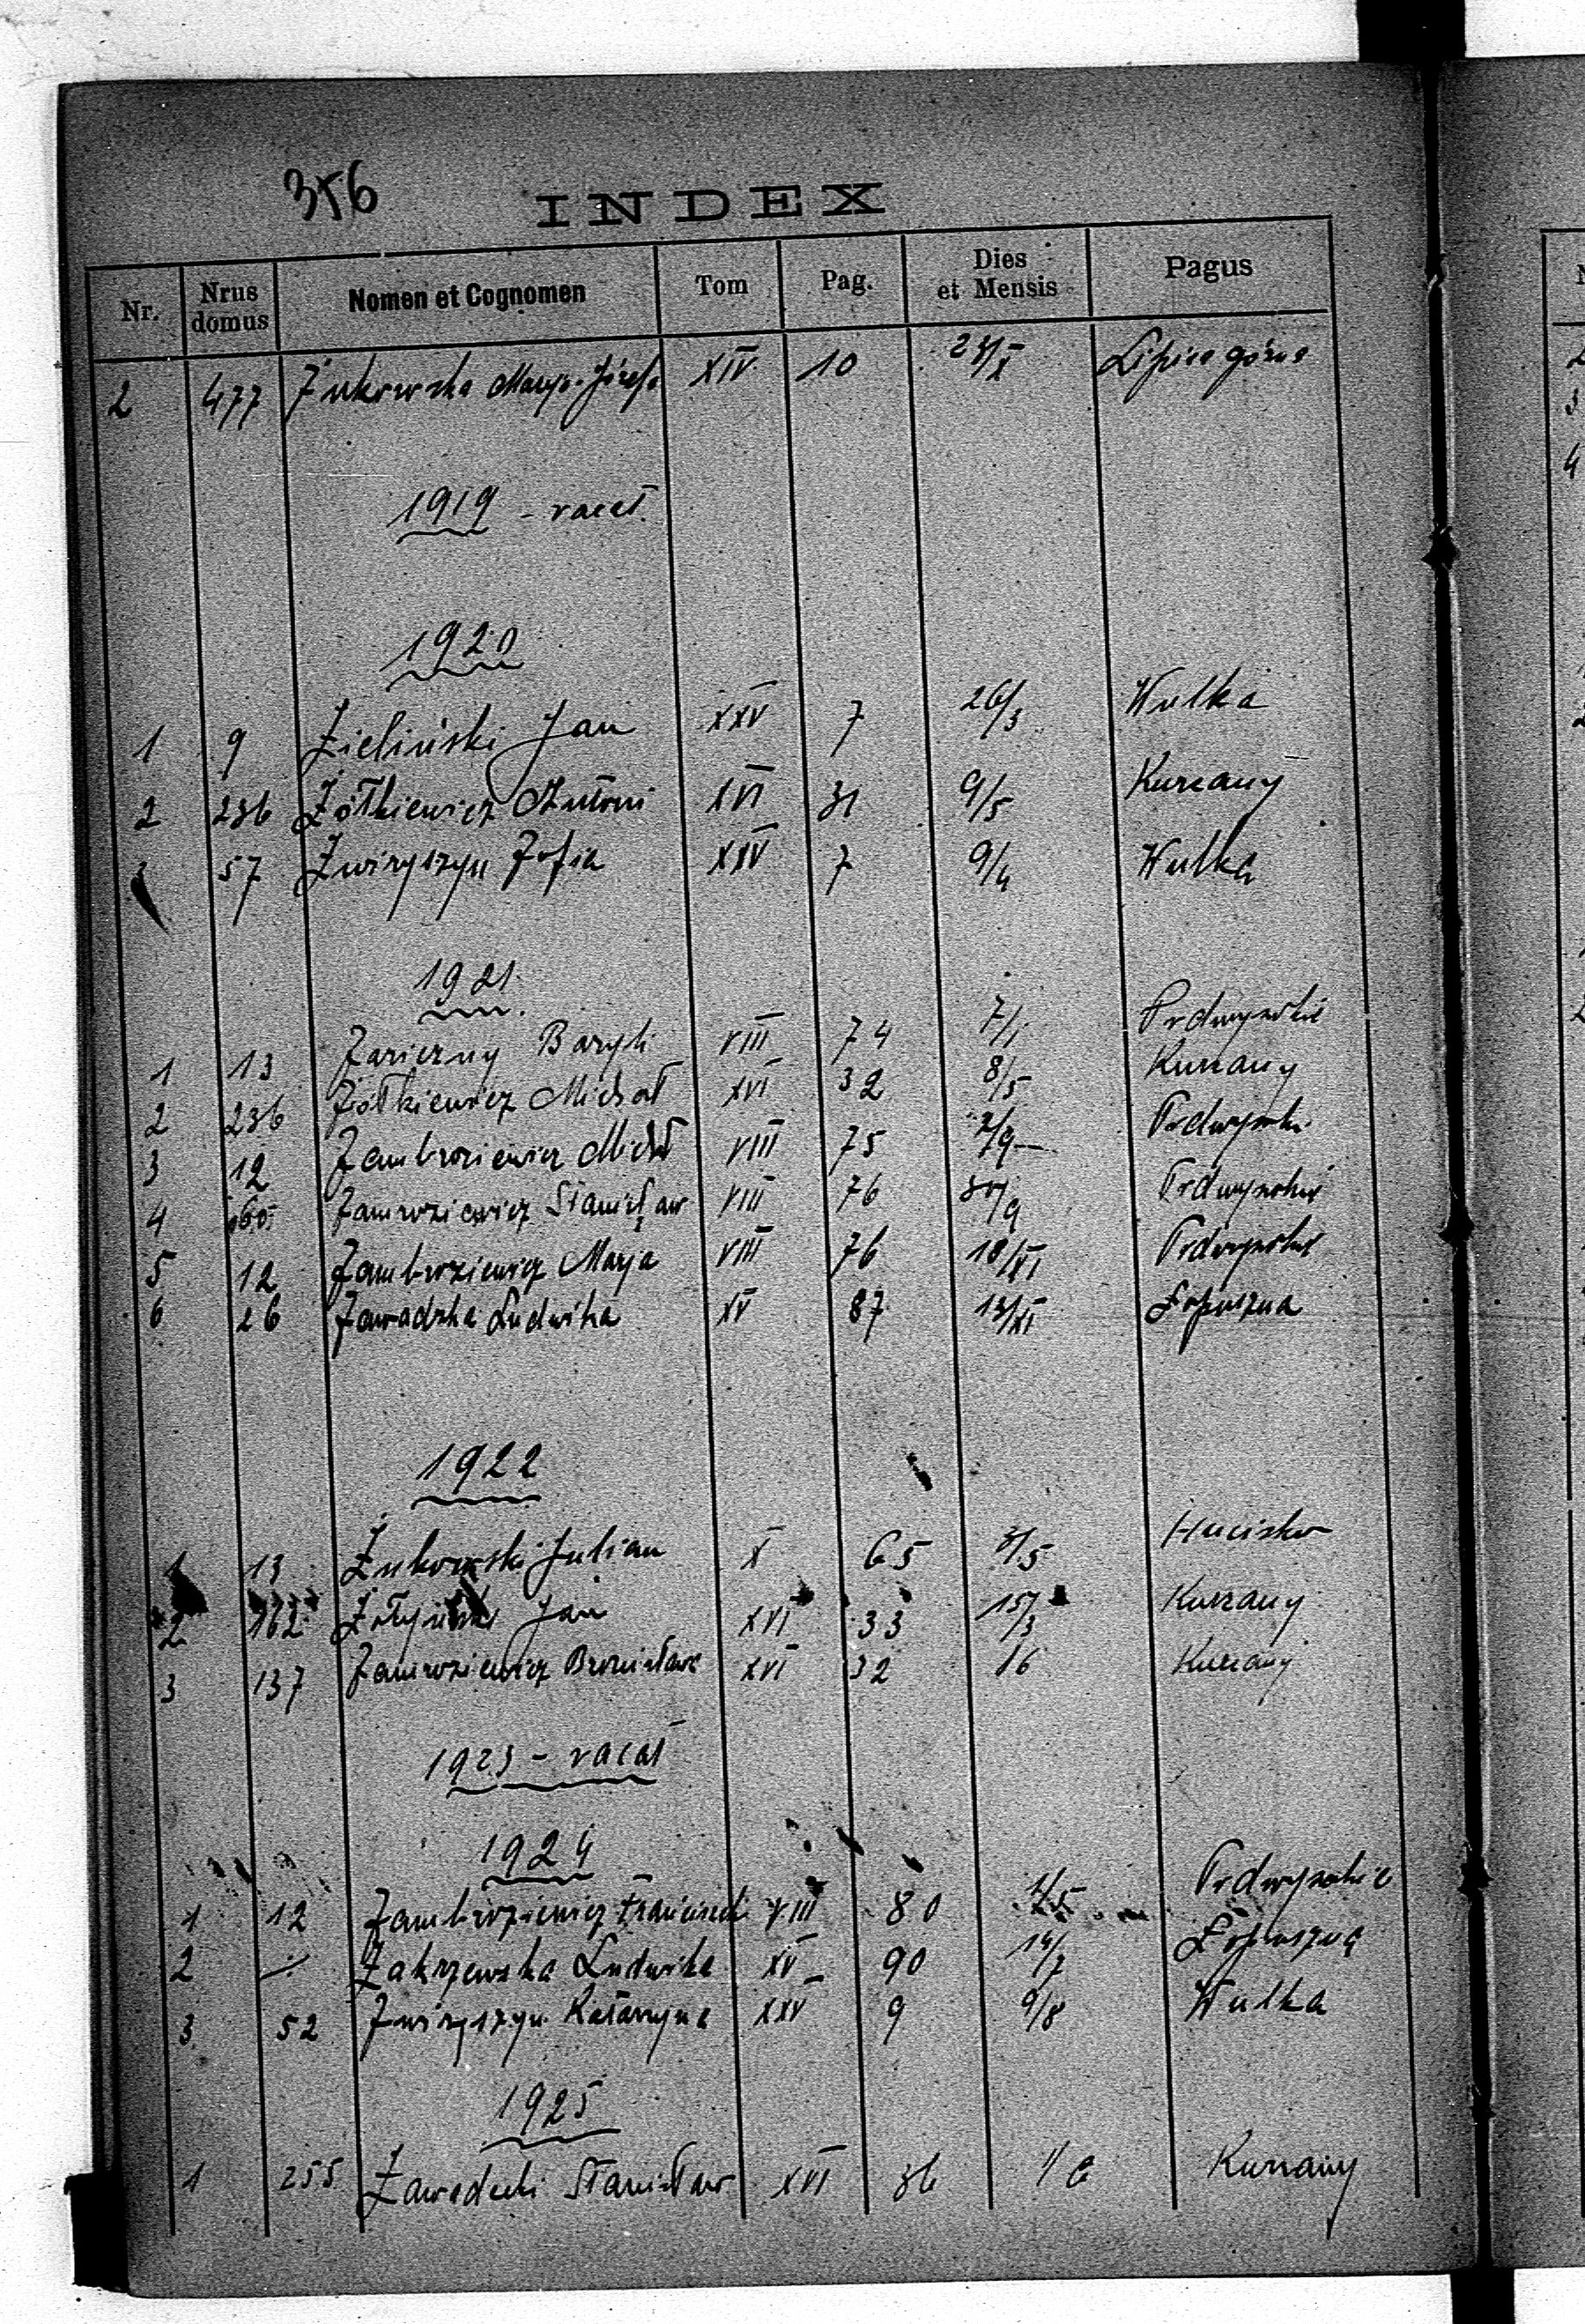 356
INDEX
Nr. Nrus domus Nomen et Cognomen Tom Pag. Dies et Mensis Pagus
2 477 Żukowska Marya Józefa XIV 10 Lipica górna
1919 - vacat
1920
1 9 Zieliński Jan XXV 7 26/3 Wulka
2 236 Żółkiewicz Antoni XVI 31 9/5 Kurzany
57 Zwiryszyn Zofia XXV 7 9/4 Wulka
1921
1 13 Zariczny Baryli VIII 74 7/1 Podwysokie
2 236 Żółkiewicz Michał XVI 32 8/5 Kurzany
3 12 Zambroziewicz Michał VIII 75 Podwysokie
4 Zamroziewicz Stanisław VIII 76 Podwysokie
5 12 Zambroziewicz Marja VIII 76 18/XI Podwysokie
6 26 Zawadzka Ludwika XV 87 13/XI Łopuszna
1922
1 13 Żukowski Julian X 65 Hucisko
2 162 Jan XVI 33 15/3 Kurzany
3 137 Zamroziewicz Bronisława XVI 32 16 Kurzany
1923 - vacat
1924
1 12 Zambroziewicz VIII 80 Podwysokie
2 Zakrzewska Ludwika XV 90 14/7 Łopuszna
3 52 Zwiryszyn Katarzyna XXV 9 9/8 Wulka
1925
1 255 Zawadzki Stanisław XVI 36 Kurzany